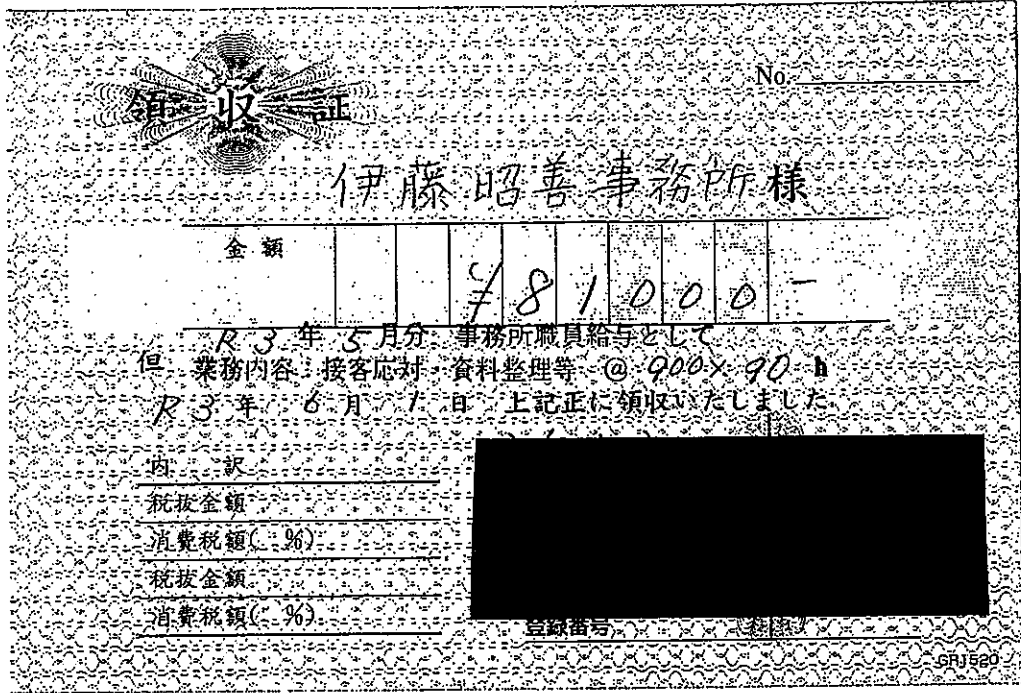 領収証
No.
伊藤昭善事務所様
金額 ¥81000-
R3年5月分 事務所職員給与として
但 業務内容:接客応対・資料整理等 @900×90h
R3年6月1日 上記正に領収いたしました
内訳
税抜金額
消費税額( %)
税抜金額
消費税額( %)
登録番号
GR1520